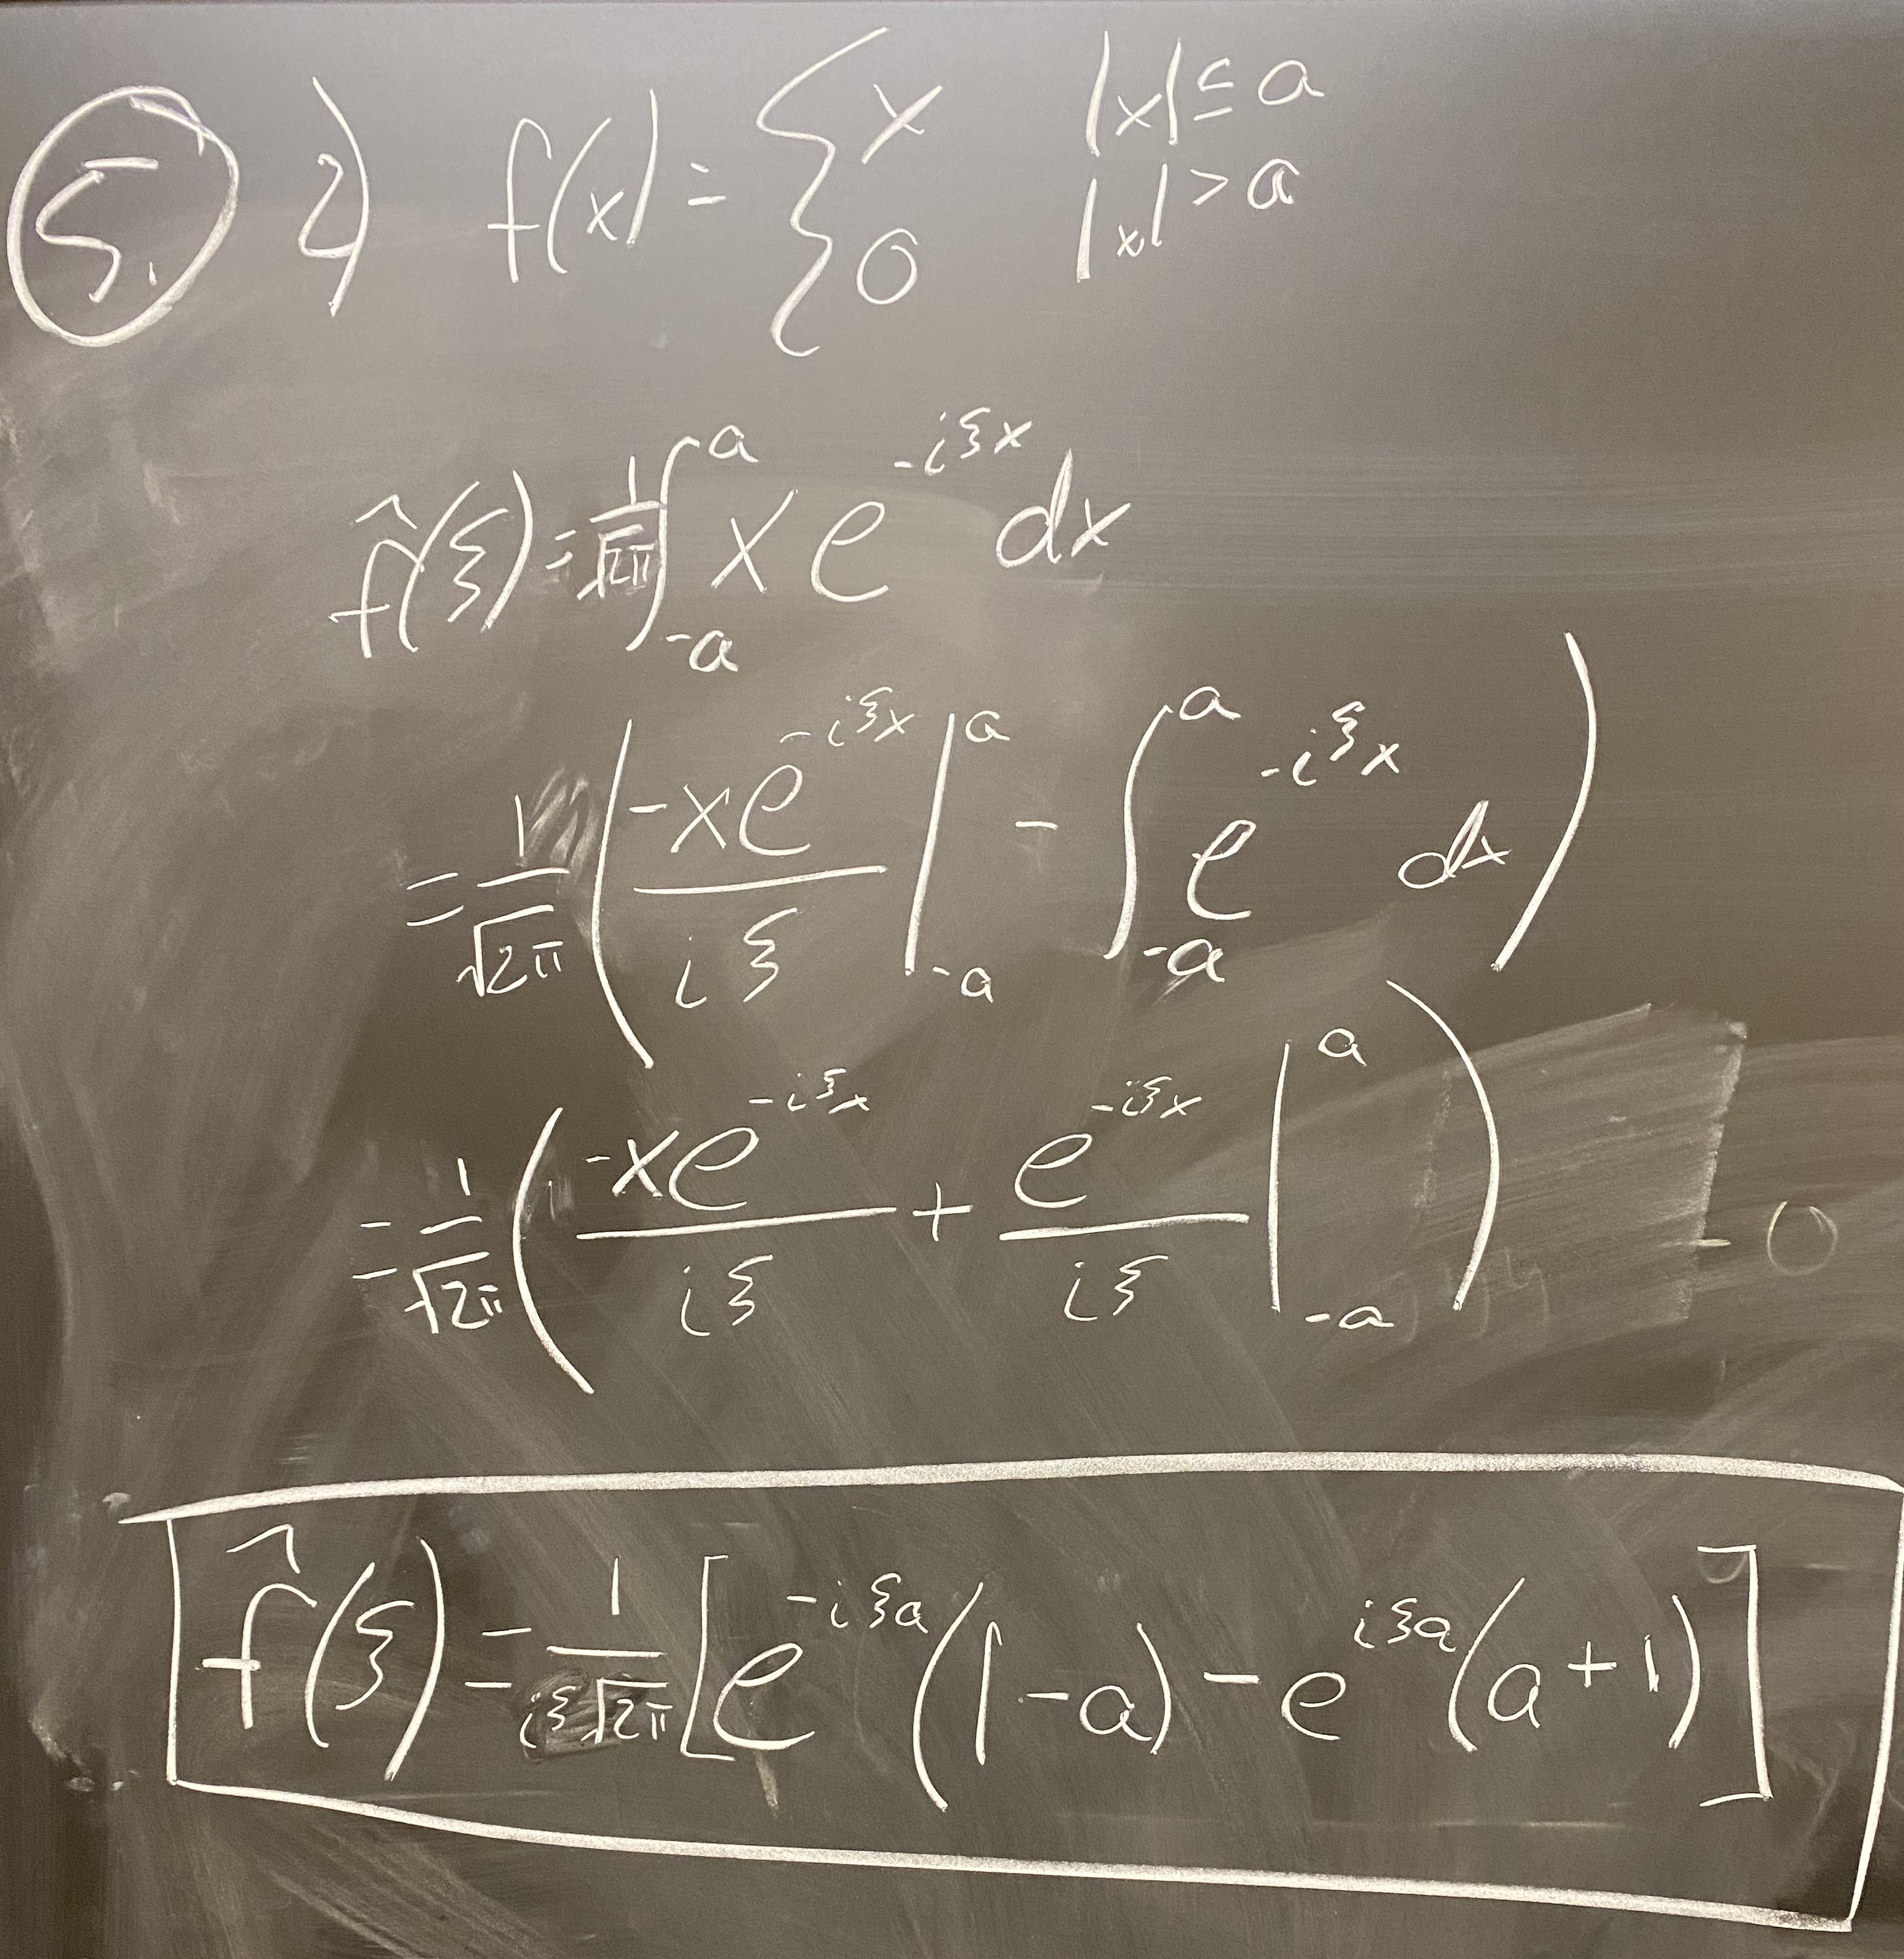 5. 2) f(x) = { x |x| ≤ a
0 |x| > a
f̂(ξ) = 1/√2π ∫_{-a}^{a} x e^{-iξx} dx
= 1/√2π ( -xe^{-iξx} / iξ |_{-a}^{a} - ∫_{-a}^{a} e^{-iξx} dx )
= 1/√2π ( -xe^{-iξx} / iξ + e^{-iξx} / iξ |_{-a}^{a} )
f̂(ξ) = 1/iξ√2π [ e^{-iξa} (1-a) - e^{iξa} (a+1) ]